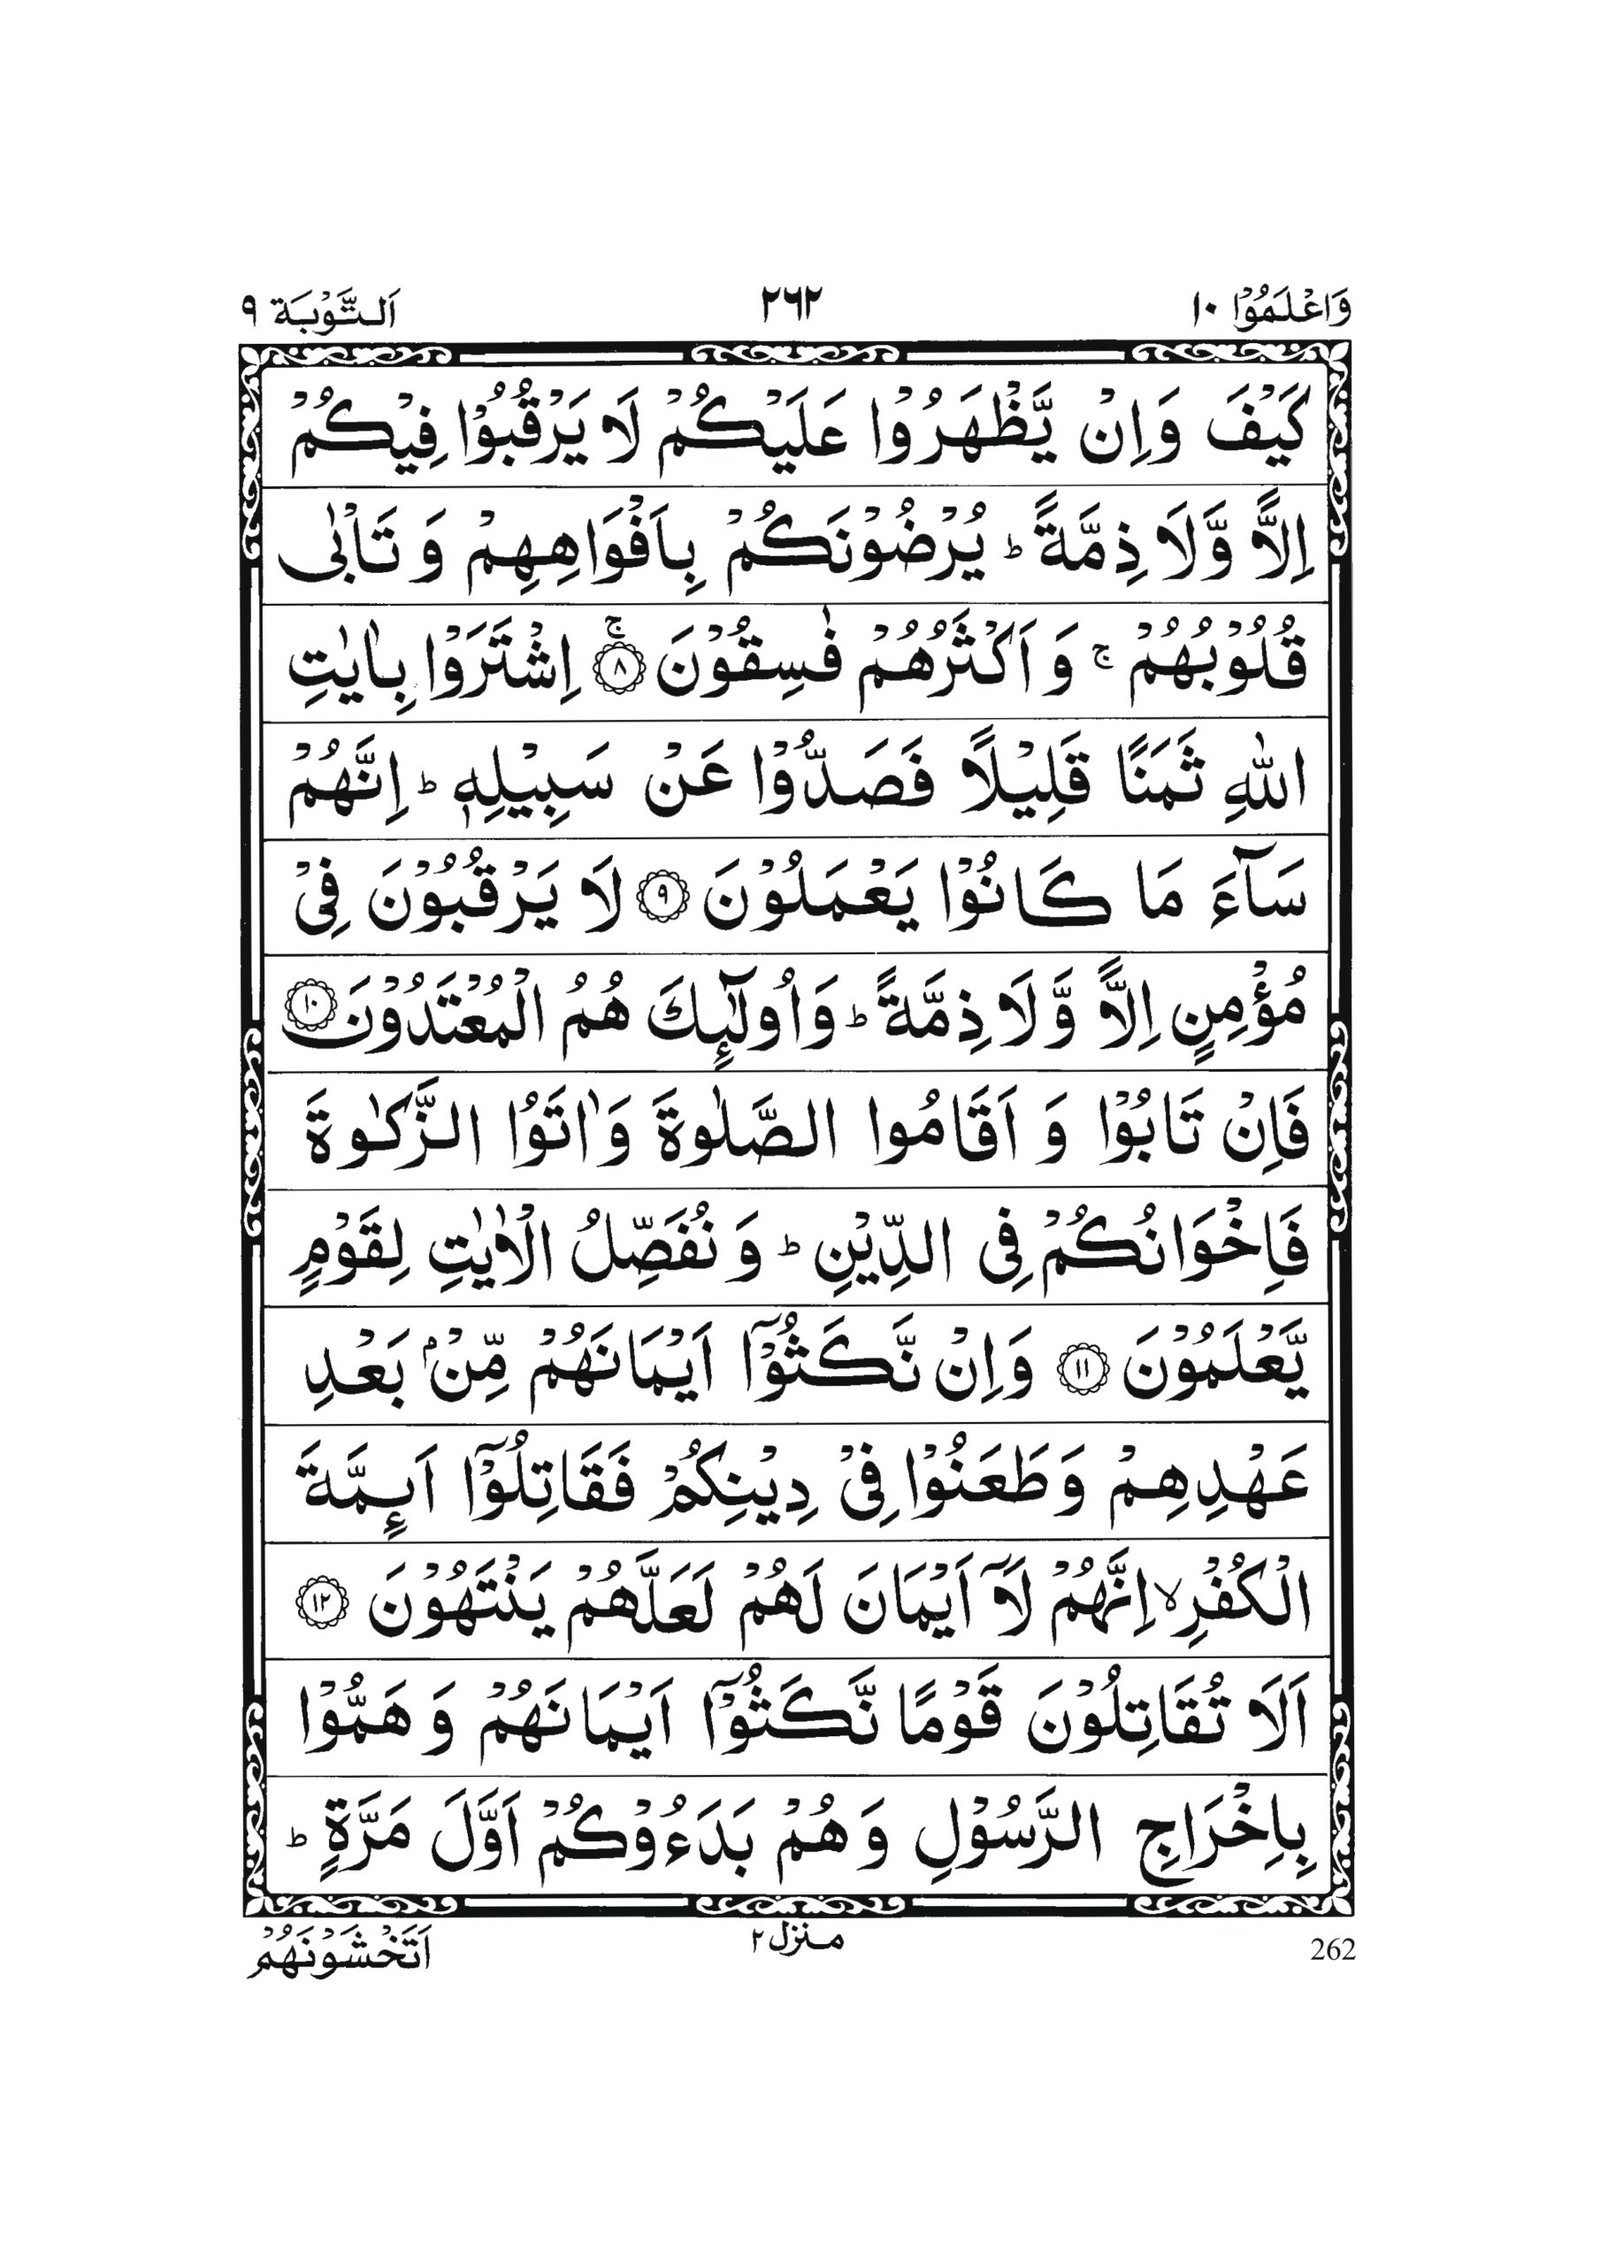 وَاعْلَمُوْۤا ١٠ ٢٦٢ اَلتَّوْبَة ٩
كَيْفَ وَاِنْ يَّظْهَرُوْا عَلَيْكُمْ لَا يَرْقُبُوْا فِيْكُمْ
اِلًّا وَّلَا ذِمَّةً ؕ يُرْضُوْنَكُمْ بِاَفْوَاهِهِمْ وَ تَاْبٰى
قُلُوْبُهُمْ ۚ وَ اَكْثَرُهُمْ فٰسِقُوْنَ ۚ ﴿٨﴾ اِشْتَرَوْا بِاٰيٰتِ
اللّٰهِ ثَمَنًا قَلِيْلًا فَصَدُّوْا عَنْ سَبِيْلِهٖ ؕ اِنَّهُمْ
سَآءَ مَا كَانُوْا يَعْمَلُوْنَ ﴿٩﴾ لَا يَرْقُبُوْنَ فِيْ
مُؤْمِنٍ اِلًّا وَّ لَا ذِمَّةً ؕ وَاُولٰٓئِكَ هُمُ الْمُعْتَدُوْنَ ﴿١٠﴾
فَاِنْ تَابُوْا وَ اَقَامُوا الصَّلٰوةَ وَاٰتَوُا الزَّكٰوةَ
فَاِخْوَانُكُمْ فِى الدِّيْنِ ؕ وَ نُفَصِّلُ الْاٰيٰتِ لِقَوْمٍ
يَّعْلَمُوْنَ ﴿١١﴾ وَاِنْ نَّكَثُوْۤا اَيْمَانَهُمْ مِّنْۢ بَعْدِ
عَهْدِهِمْ وَطَعَنُوْا فِيْ دِيْنِكُمْ فَقَاتِلُوْۤا اَئِمَّةَ
الْكُفْرِ ۙ اِنَّهُمْ لَاۤ اَيْمَانَ لَهُمْ لَعَلَّهُمْ يَنْتَهُوْنَ ﴿١٢﴾
اَلَا تُقَاتِلُوْنَ قَوْمًا نَّكَثُوْۤا اَيْمَانَهُمْ وَ هَمُّوْا
بِاِخْرَاجِ الرَّسُوْلِ وَ هُمْ بَدَءُوْكُمْ اَوَّلَ مَرَّةٍ ؕ
262 منزل ٢ اَتَخْشَوْنَهُمْ